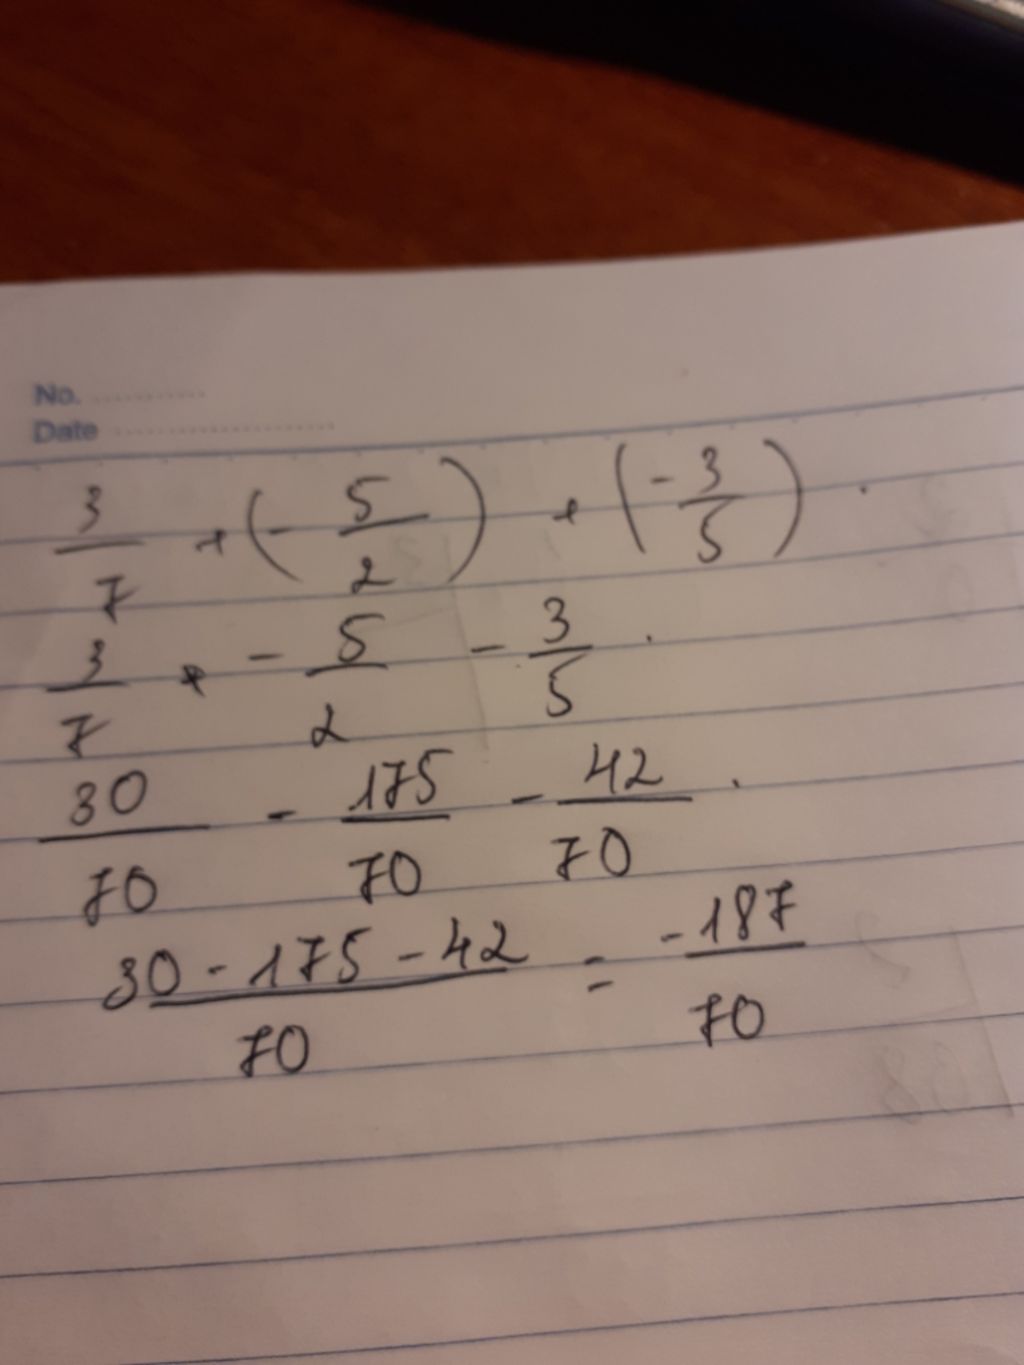 No. ...........
Date ......................
3/7 + (- 5/2) + (- 3/5) .
3/7 + - 5/2 - 3/5 .
30/70 - 175/70 - 42/70 .
30 - 175 - 42/70 = -187/70